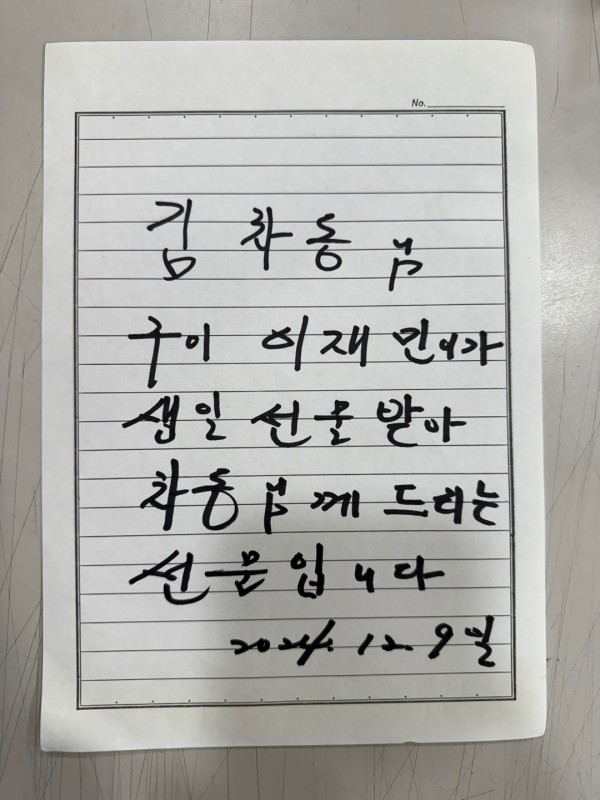 No.
김 차동 님
구이 이재민이가
생일 선물 받아
차동님께 드리는
선물입니다
2024. 12. 9일